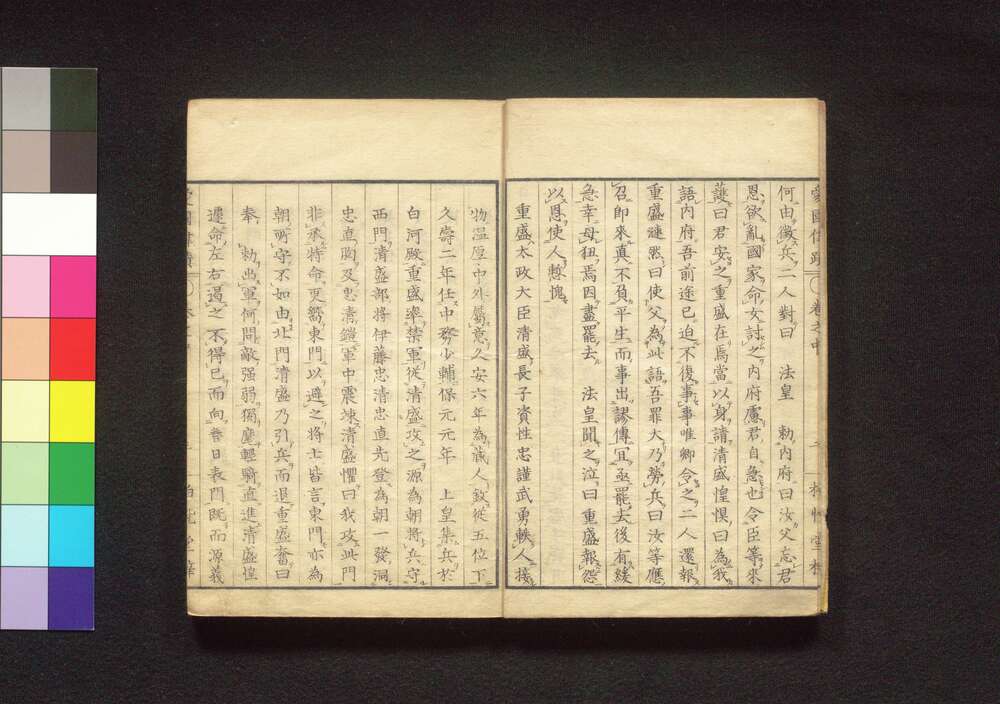 何由徵兵二人對曰　法皇　勅內府曰汝父忘君
恩欲亂國家命女討之內府慮君自急也令臣等求
護曰君安之重盛在焉當以身請清盛惶惧曰為我
語內府吾前途已迫不復事事唯卿令之二人還報
重盛漣然曰使父為此語吾罪大乃勞兵曰汝等應
召即來真不負平生而事出謬傳宜亟罷去後有緩
急幸毋狃焉因盡罷去　法皇聞之泣曰重盛報怨
以恩使人慙愧
重盛太政大臣清盛長子資性忠謹武勇軼人接
物溫厚中外屬意久安六年為藏人敘從五位下
久壽二年任中務少輔保元元年　上皇集兵於
白河殿重盛率禁軍從清盛攻之源為朝將兵守
西門清盛部將伊藤忠清忠直先登為朝一發洞
忠直胸及忠清鎧軍中震悚清盛懼曰我攻此門
非承特命更嚮東門以避之將士皆言東門亦為
朝所守不如由北門清盛乃引兵而退重盛奮曰
奉　勅出軍何問敵强弱獨麾輕騎直進清盛惶
遽命左右遏之不得已而向春日表門既而源義